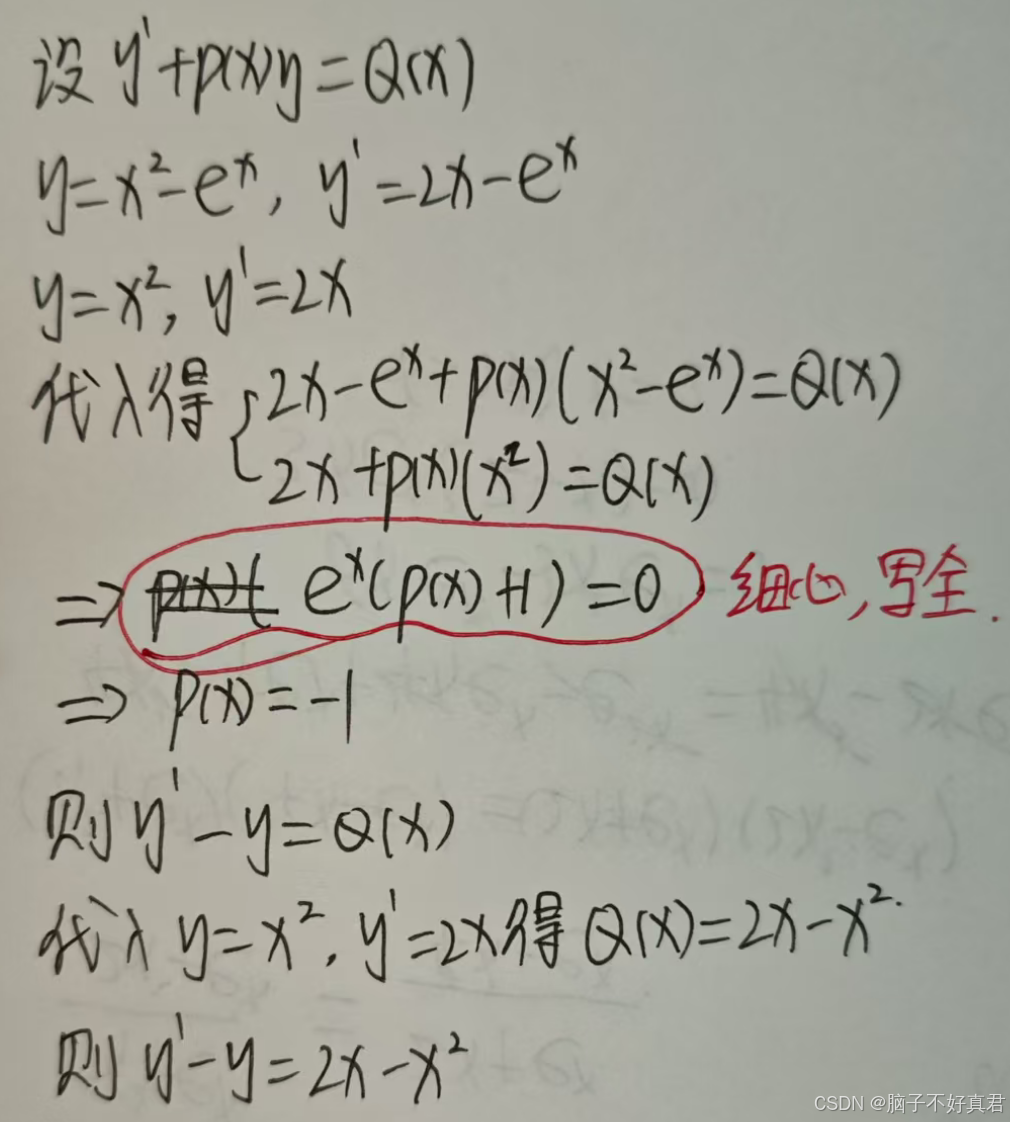 设 y'+p(x)y=Q(x)
y=x²-eˣ, y'=2x-eˣ
y=x², y'=2x
代入得 { 2x-eˣ+p(x)(x²-eˣ)=Q(x)
2x+p(x)(x²)=Q(x)
⇒ p(x)( eˣ(p(x)+1)=0 细心,写全.
⇒ p(x)=-1
则 y'-y=Q(x)
代入 y=x², y'=2x 得 Q(x)=2x-x².
则 y'-y=2x-x²
CSDN @脑子不好真君